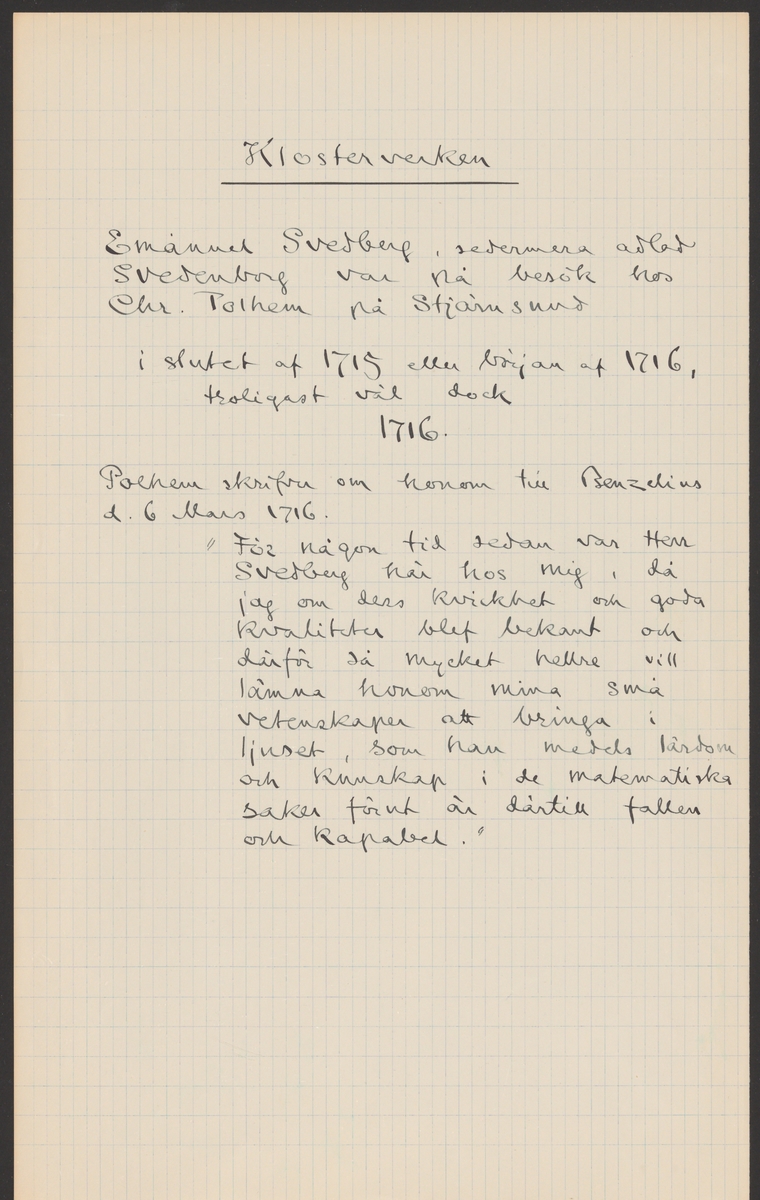 Klosterverken
Emanuel Svedberg, sedermera adlad
Svedenborg var på besök hos
Chr. Polhem på Stjärnsund
i slutet af 1715 eller början af 1716,
troligast väl dock
1716.
Polhem skrifver om honom till Benzelius
d. 6 Mars 1716.
"För någon tid sedan var Herr
Svedberg här hos mig, då
jag om dess kvickhet och goda
kvaliteter blef bekant och
därför så mycket hellre vill
lämna honom mina små
vetenskaper att bringa i
ljuset, som han medels lärdom
och kunskap i de matematiska
saker förut är därtill fallen
och kapabel."